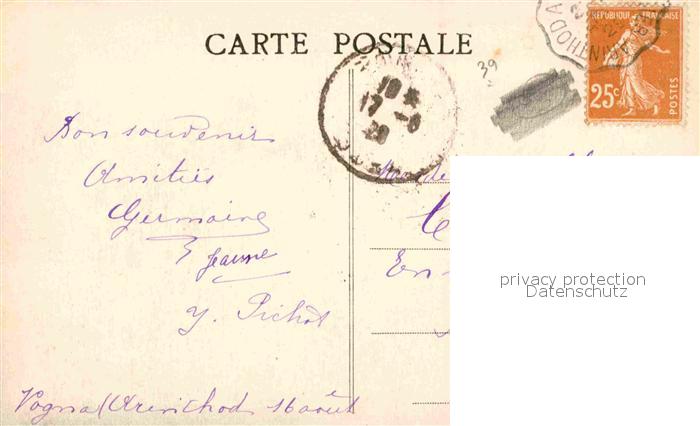 CARTE POSTALE
39
RÉPUBLIQUE FRANÇAISE
25c
POSTES
17 -8
Bon souvenir
Amitiés
Germaine
Jeanne
Y. Pichot
16 août
En
privacy protection
Datenschutz